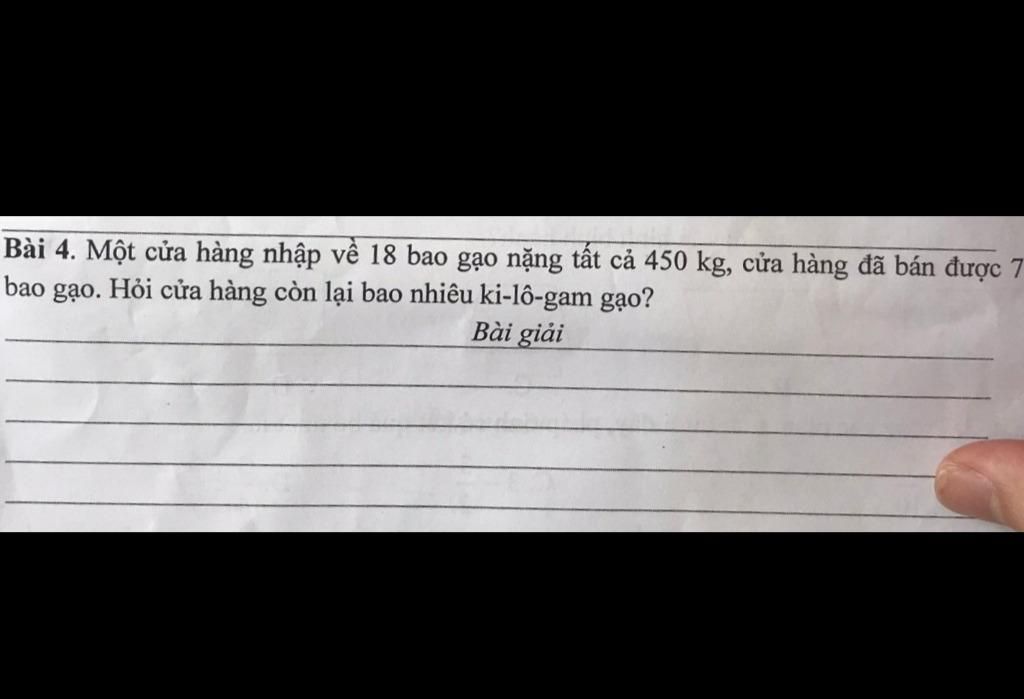 Bài 4. Một cửa hàng nhập về 18 bao gạo nặng tất cả 450 kg, cửa hàng đã bán được 7
bao gạo. Hỏi cửa hàng còn lại bao nhiêu ki-lô-gam gạo?
Bài giải